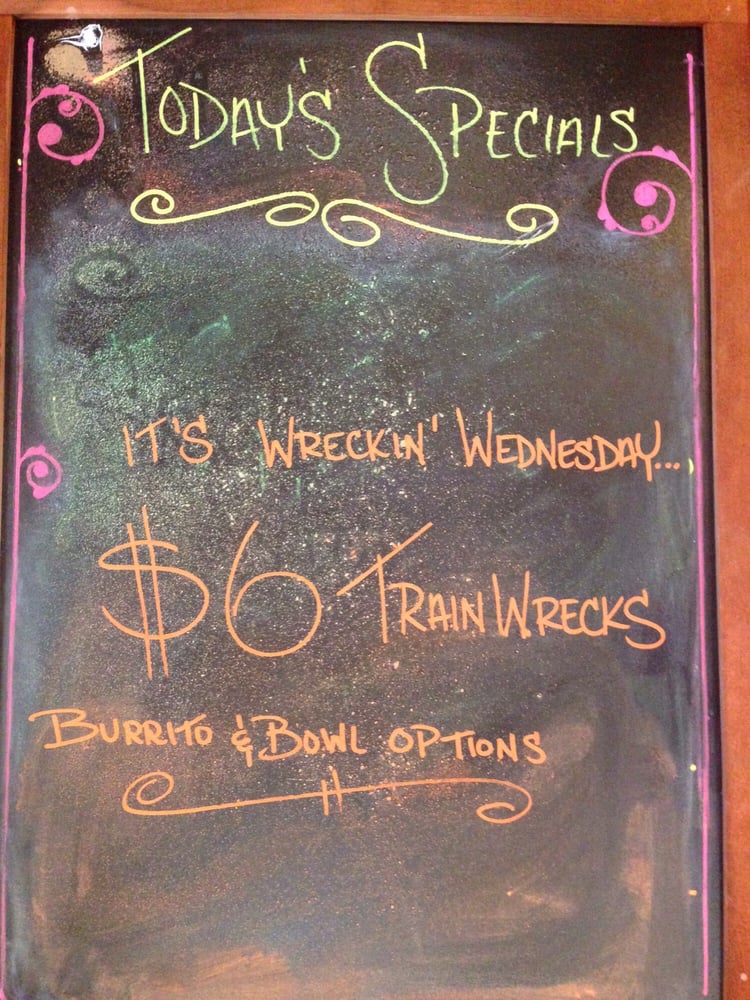 TODAY'S SPECIALS
IT'S WRECKIN' WEDNESDAY...
$6 TRAIN WRECKS
BURRITO & BOWL OPTIONS